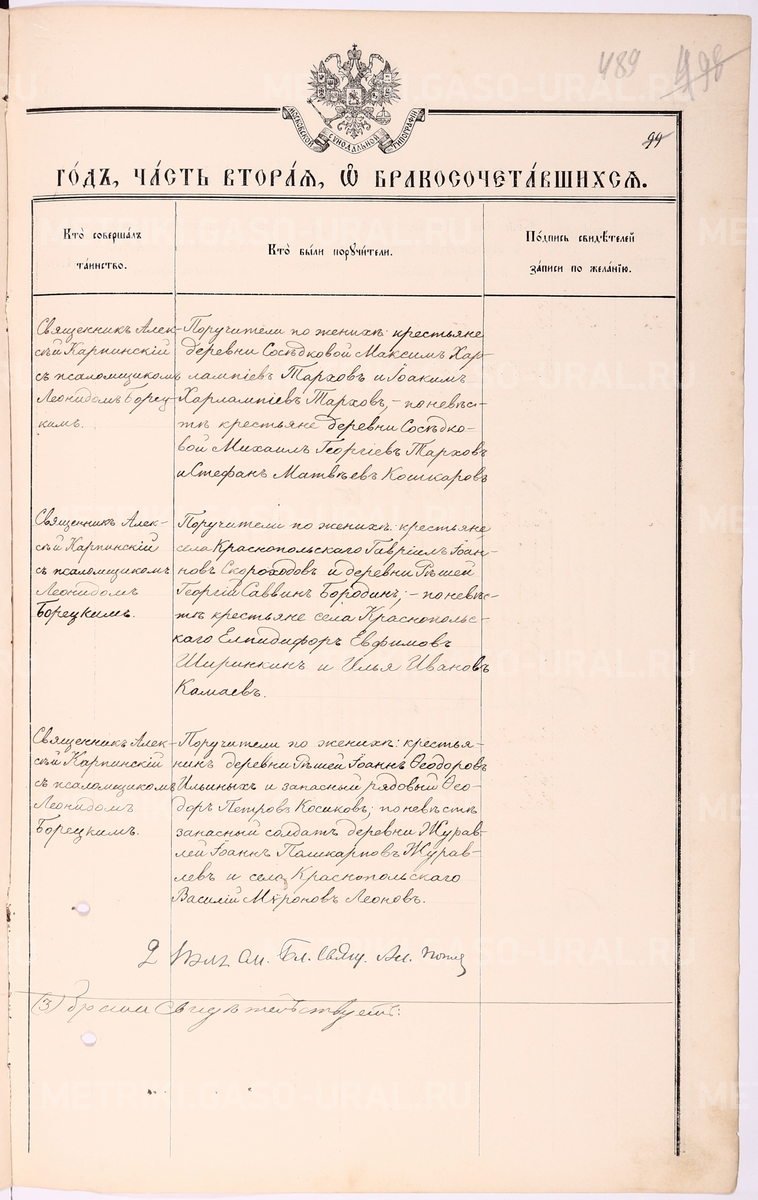 489 498
МОСКОВСКОЙ СѴНОДАЛЬНОЙ ТИПОГРАФІИ
99
ГО́ДЪ, ЧА́СТЬ ВТОРА́Я, Ѽ БРАКОСОЧЕТА́ВШИХСЯ.
Кто̀ соверша́лъ
та́инство.
Кто̀ бы́ли порꙋчи́тели.
По́дпись свидѣ́телей
за́писи по жела́нію.
Священникъ Алек-
сѣй Карпинскій
съ псаломщикомъ
Леонидомъ Борец-
кимъ.
Поручители по женихѣ: крестьяне
деревни Сосѣдковой Максимъ Хар-
лампіевъ Тарховъ и Іоакимъ
Харлампіевъ Тарховъ, - по невѣс-
тѣ крестьяне деревни Сосѣдко-
вой Михаилъ Георгіевъ Тарховъ
и Стефанъ Матвѣевъ Кошкаровъ
Священникъ Алек-
сѣй Карпинскій
съ псаломщикомъ
Леонидомъ
Борецкимъ.
Поручители по женихѣ: крестьяне
села Краснопольскаго Гавріилъ Іоан-
новъ Скороходовъ и деревни Рѣшей
Георгій Саввинъ Бородинъ; - по невѣс-
тѣ крестьяне села Краснопольс-
каго Елпидифоръ Евфимовъ
Ширинкинъ и Илья Ивановъ
Камаевъ.
Священникъ Алек-
сѣй Карпинскій
съ псаломщикомъ
Леонидомъ
Борецкимъ.
Поручители по женихѣ: крестья-
нинъ деревни Рѣшей Іоаннъ Ѳеодоровъ
Ильиныхъ и запасный рядовый Ѳео-
доръ Петровъ Косиковъ; по невѣстѣ
запасный солдатъ деревни Журав-
лей Іоаннъ Поликарповъ Журав-
левъ и села Краснопольскаго
Василій Мѵроновъ Леоновъ.
Бл. Свящ. Ал. Попов
(3) брака свидѣтельствуетъ:
METRIKI.GASO-URAL.RU